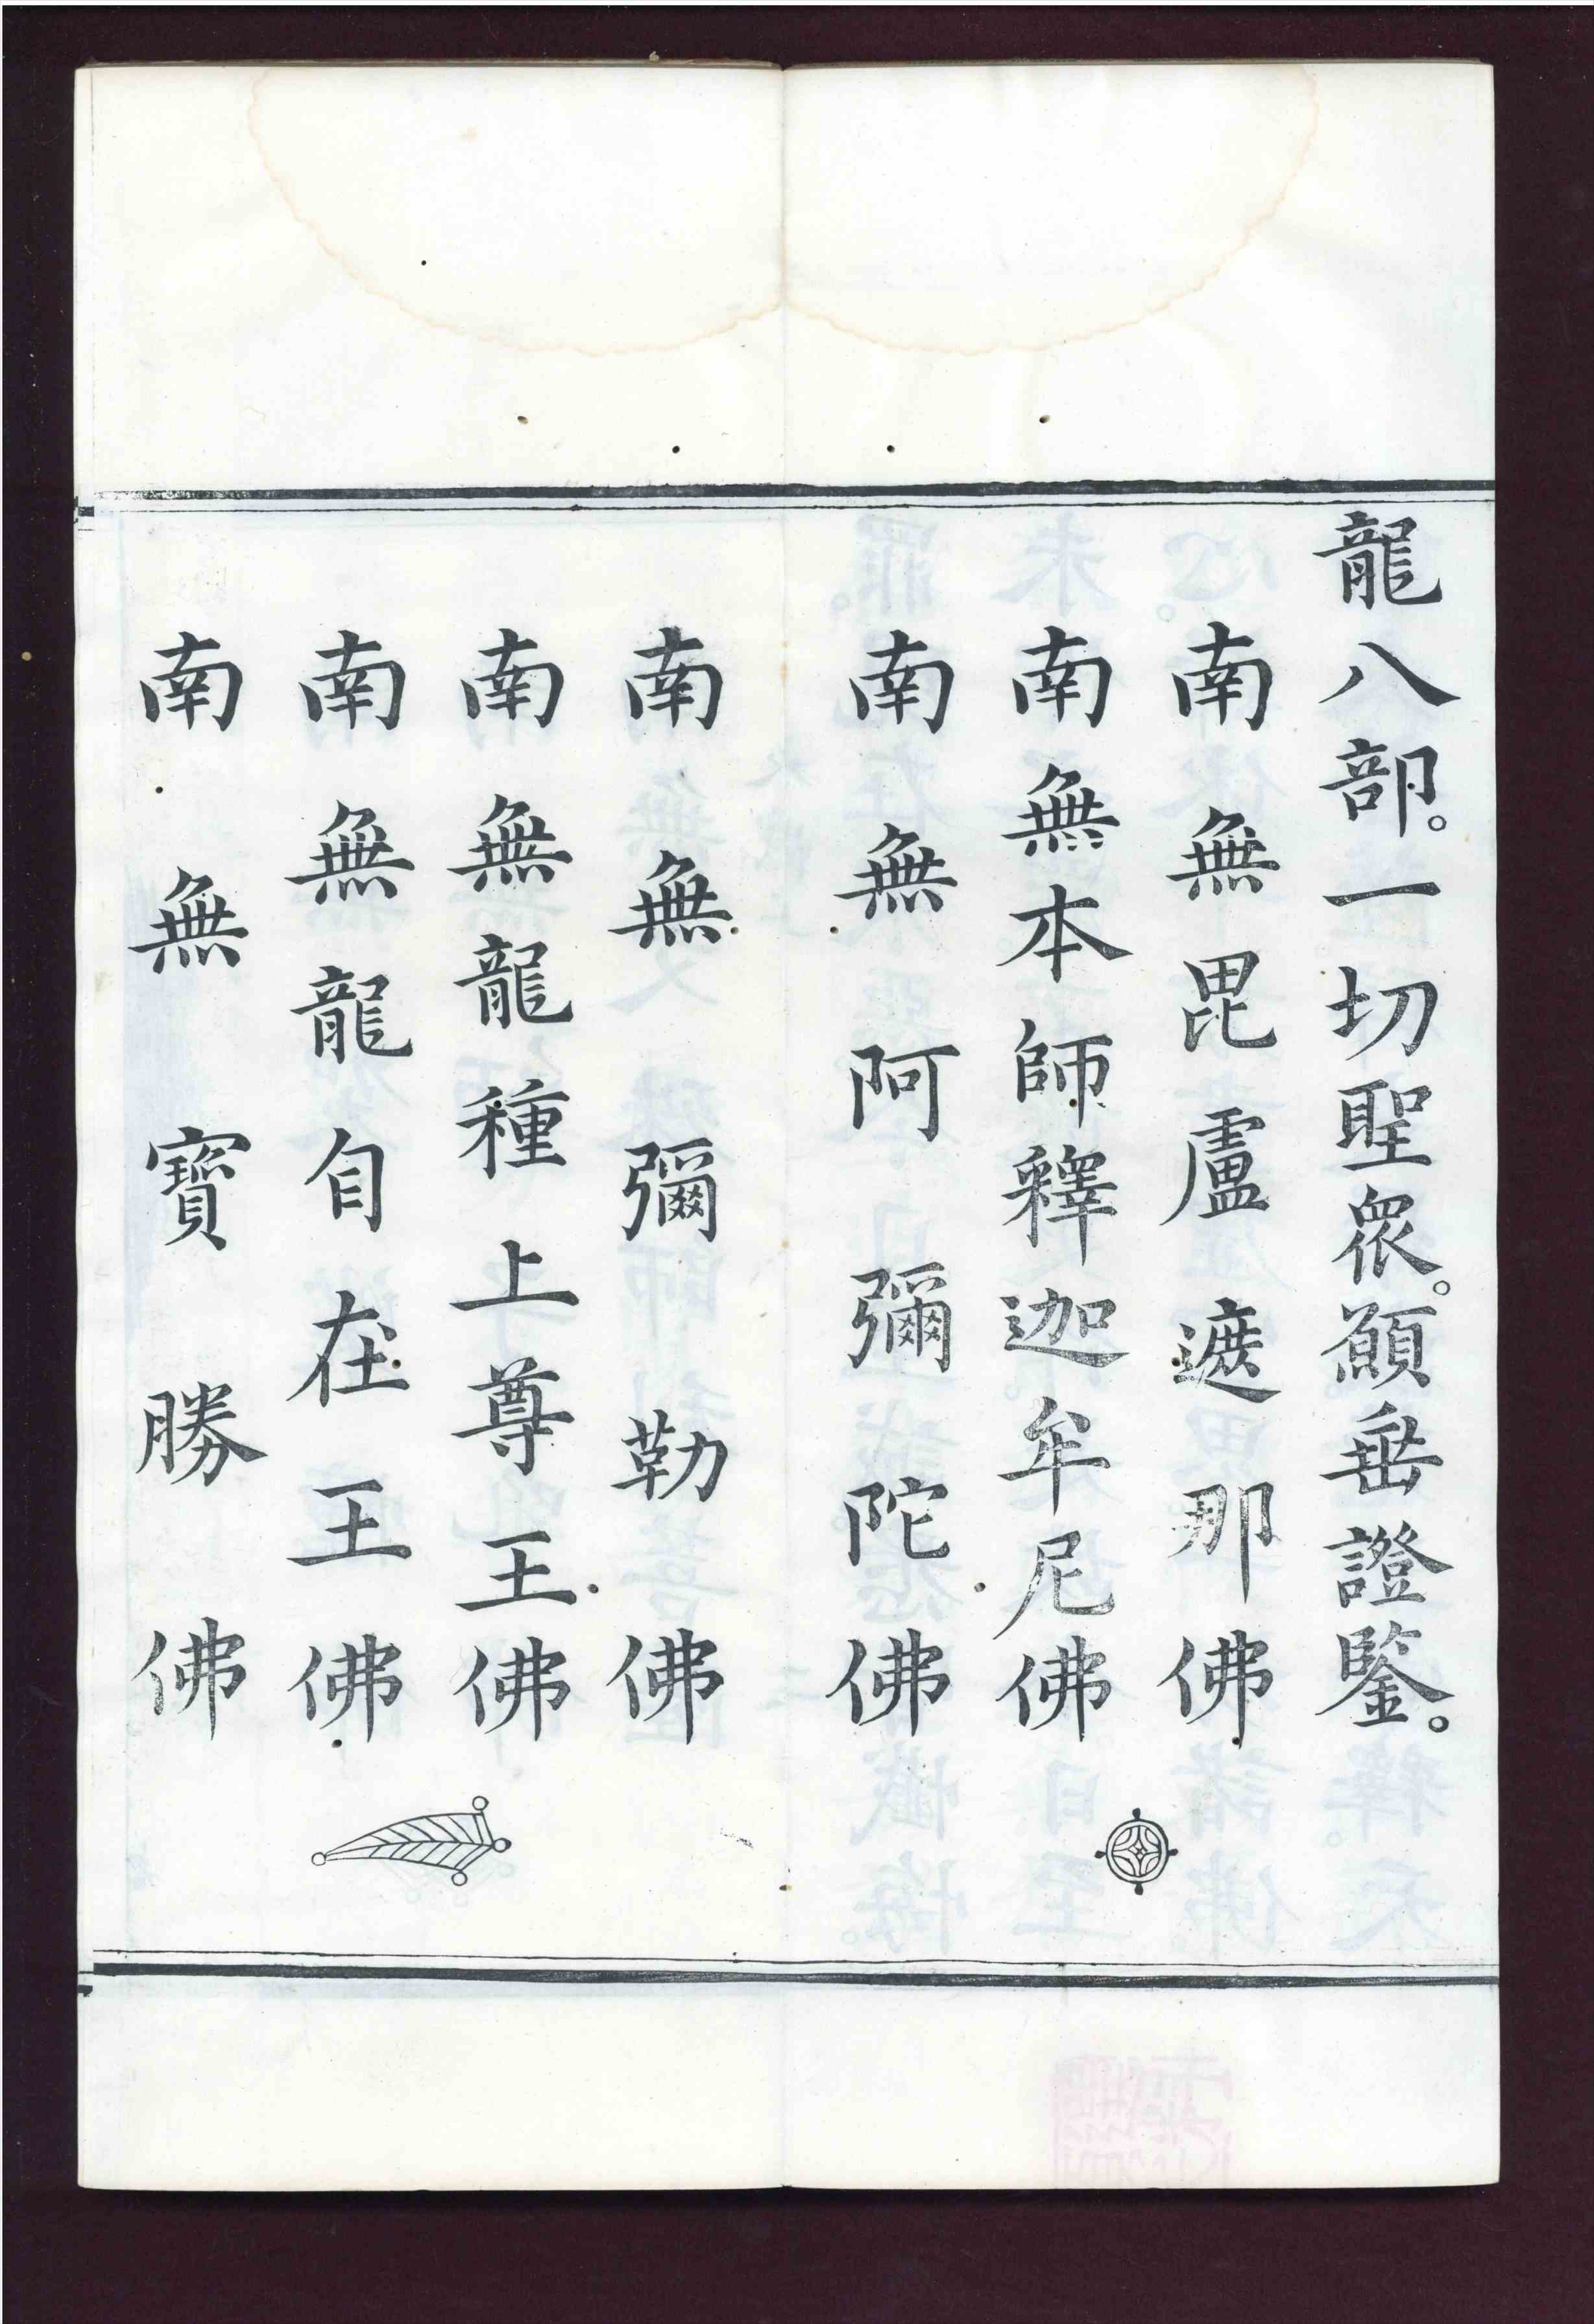 龍八部。一切聖眾。願垂證鑒。
南無毘盧遮那佛
南無本師釋迦牟尼佛
南無阿彌陀佛
南無彌勒佛
南無龍種上尊王佛
南無龍自在王佛
南無寶勝佛